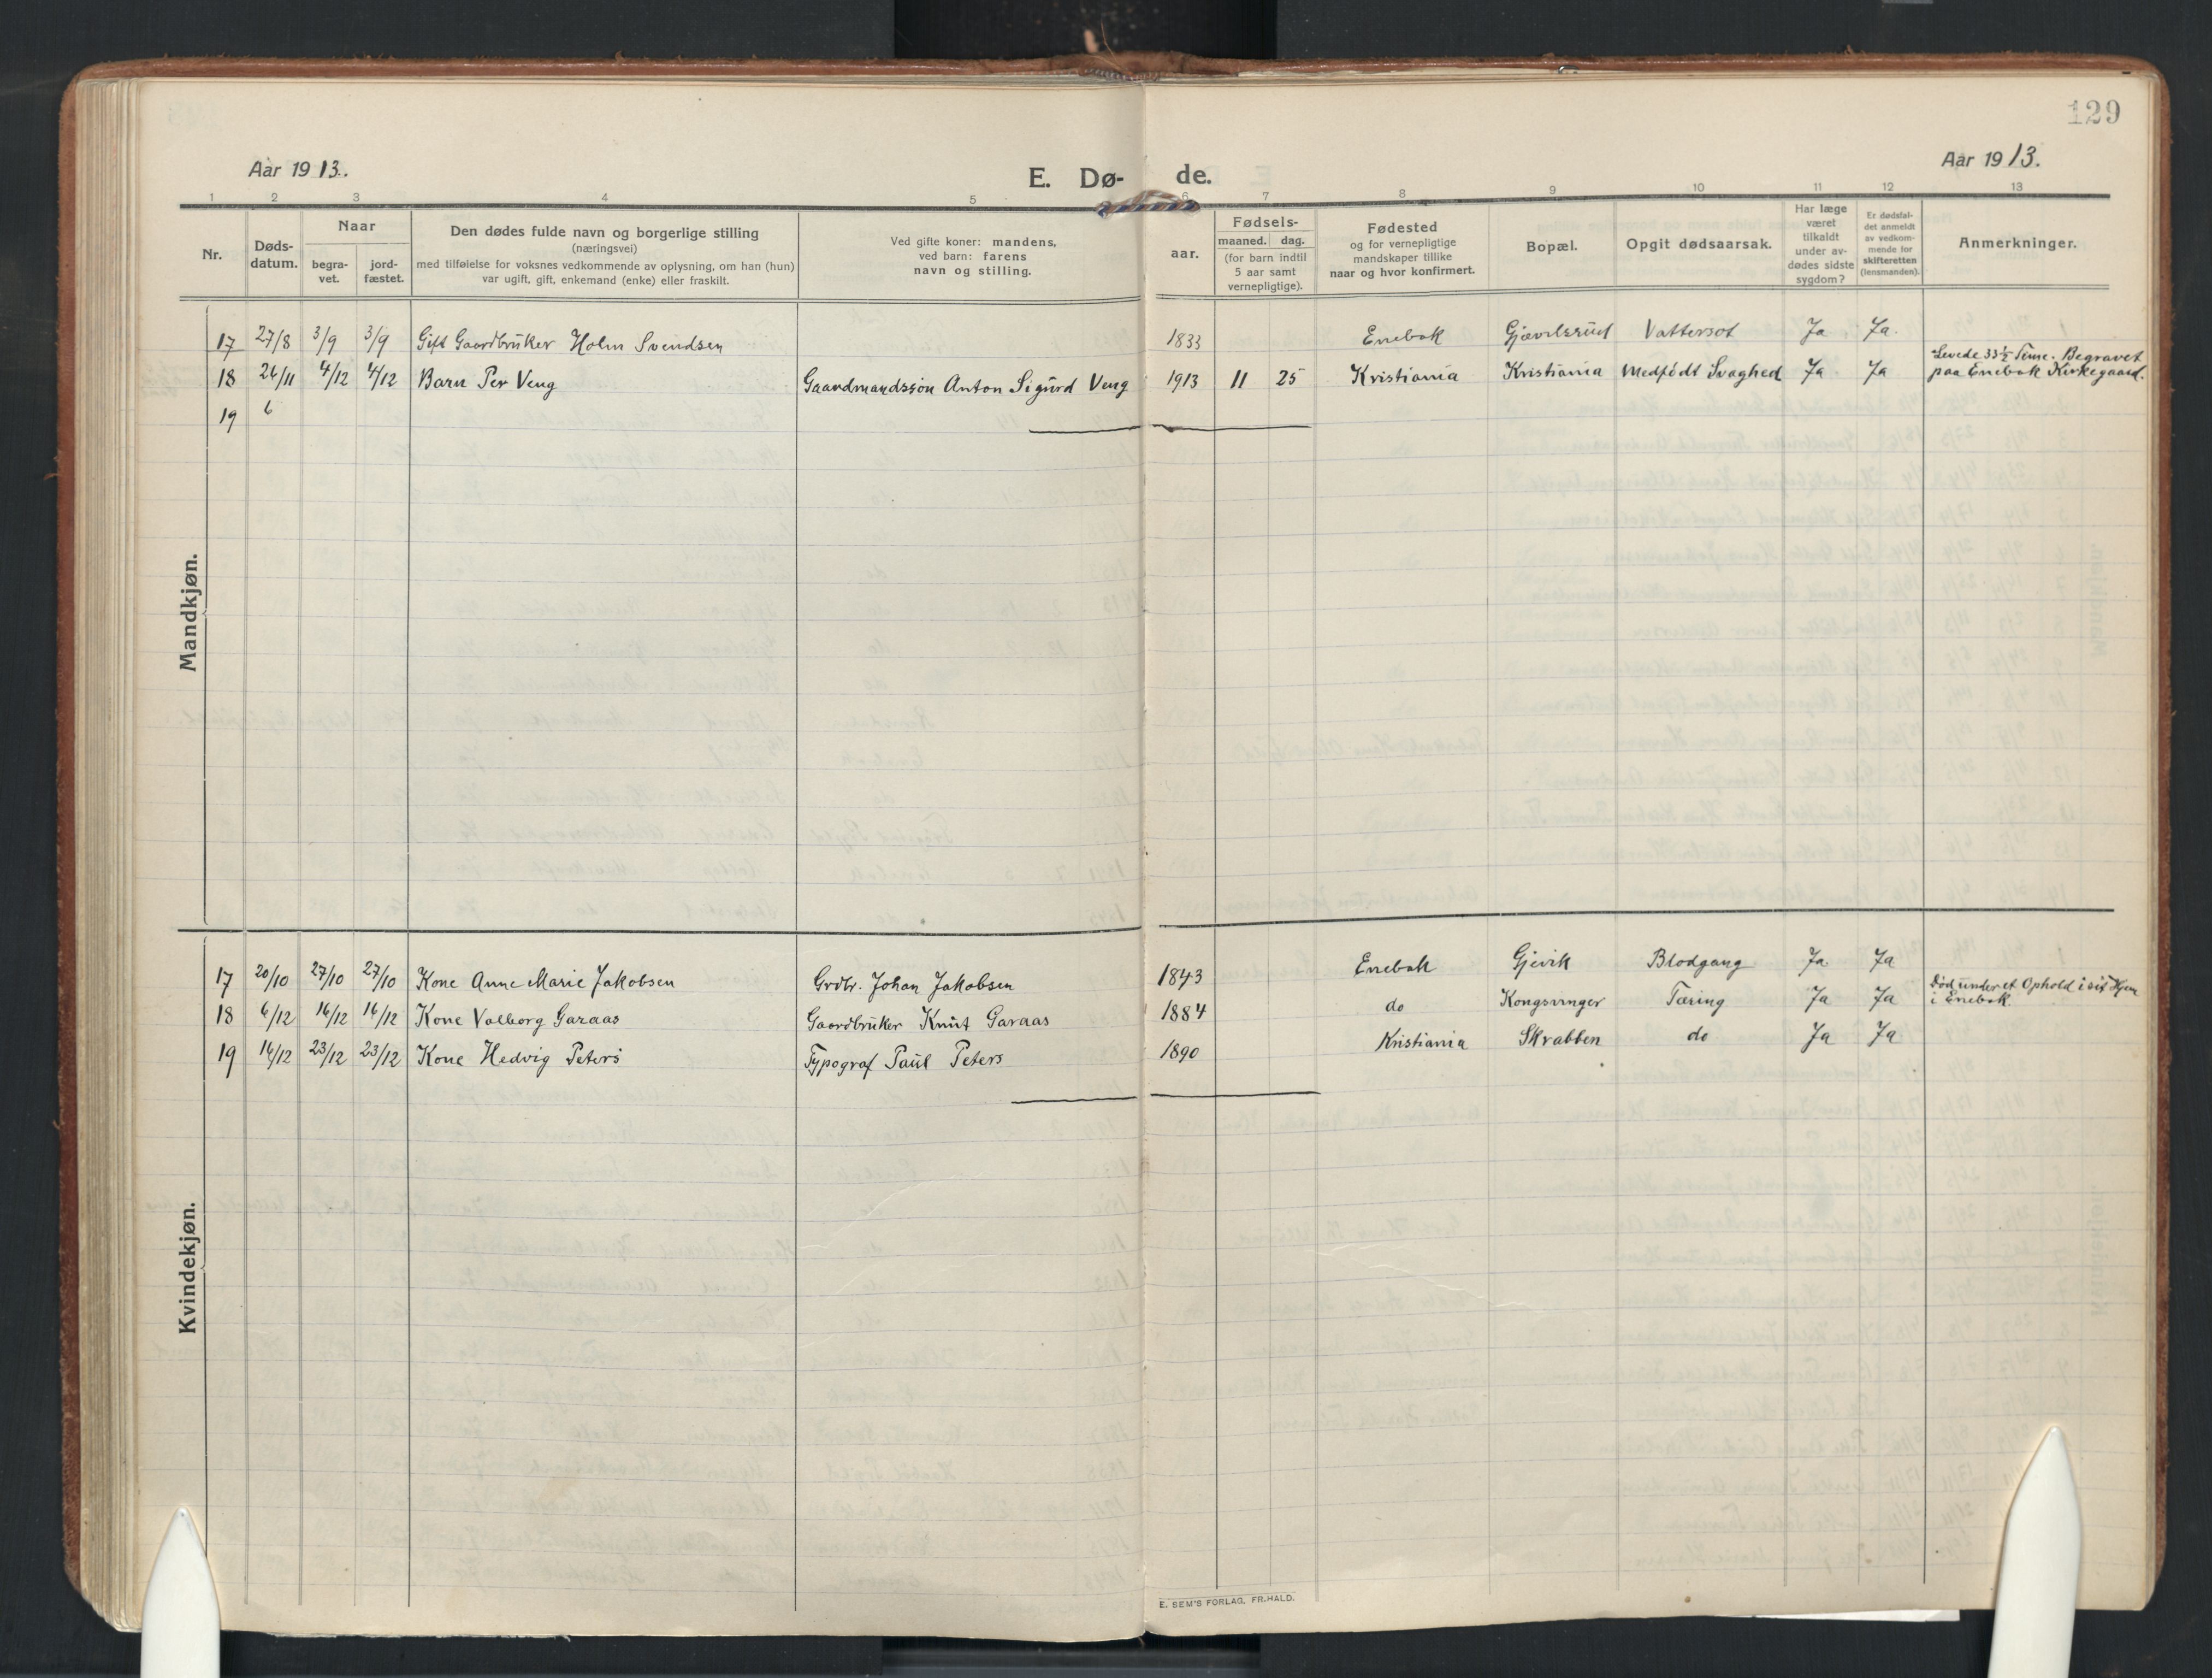 129
Aar 1913.
E. Dø- de.
Aar 1913.
1 2 3 4 5 6 7 8 9 10 11 12 13
Nr.
Døds-
datum.
Naar
begra-
vet.
jord-
fæstet.
Den dødes fulde navn og borgerlige stilling
(næringsvei)
med tilføielse for voksnes vedkommende av oplysning, om han (hun)
var ugift, gift, enkemand (enke) eller fraskilt.
Ved gifte koner: mandens,
ved barn: farens
navn og stilling.
Fødsels-
aar.
maaned. dag.
(for barn indtil
5 aar samt
vernepligtige).
Fødested
og for vernepligtige
mandskaper tillike
naar og hvor konfirmert.
Bopæl.
Opgit dødsaarsak.
Har læge
været
tilkaldt
under av-
dødes sidste
sygdom?
Er dødsfal-
det anmeldt
av vedkom-
mende for
skifteretten
(lensmanden).
Anmerkninger.
Mandkjøn.
17 27/8 3/9 3/9 Gift Gaardbruker Holm Svendsen 1833 Enebak Gjævelsrud Vattersot Ja Ja.
18 26/11 4/12 4/12 Barn Per Veng Gaardmandssøn Anton Sigurd Veng 1913 11 25 Kristiania Kristiania Medfødt Svaghed Ja Ja Levede 33½ Time. Begravet
paa Enebak Kirkegaard.
19 6
Kvindekjøn.
17 20/10 27/10 27/10 Kone Anne Marie Jakobsen Grdbr. Johan Jakobsen 1843 Enebak Gjevik Blodgang Ja Ja
18 6/12 16/12 16/12 Kone Valborg Garaas Gaardbruker Knut Garaas 1884 do Kongsvinger Tæring Ja Ja Død under et Ophold i sit Hjem
i Enebak
19 16/12 23/12 23/12 Kone Hedvig Peters Typograf Paul Peters 1890 Kristiania Skrabben do Ja Ja
E. SEM'S FORLAG, FR.HALD.